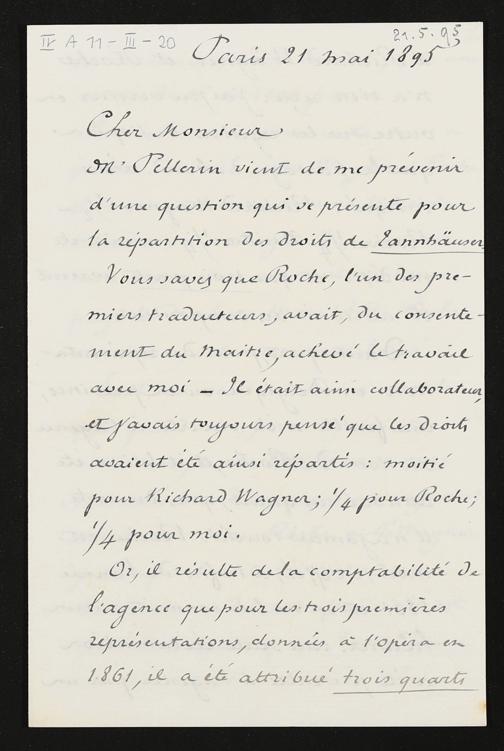 IV A 11 - III - 20
21.5.95
Paris 21 mai 1895
Cher Monsieur
Mr Pellerin vient de me prévenir
d'une question qui se présente pour
la répartition des droits de Tannhäuser.
Vous savez que Roche, l'un des pre-
miers traducteurs, avait, du consente-
ment du Maitre, achevé le travail
avec moi — Il était ainsi collaborateur,
et j'avais toujours pensé que les droits
avaient été ainsi répartis : moitié
pour Richard Wagner ; 1/4 pour Roche ;
1/4 pour moi.
Or, il résulte de la comptabilité de
l'agence que pour les trois premières
représentations, données à l'opéra en
1861, il a été attribué trois quarts